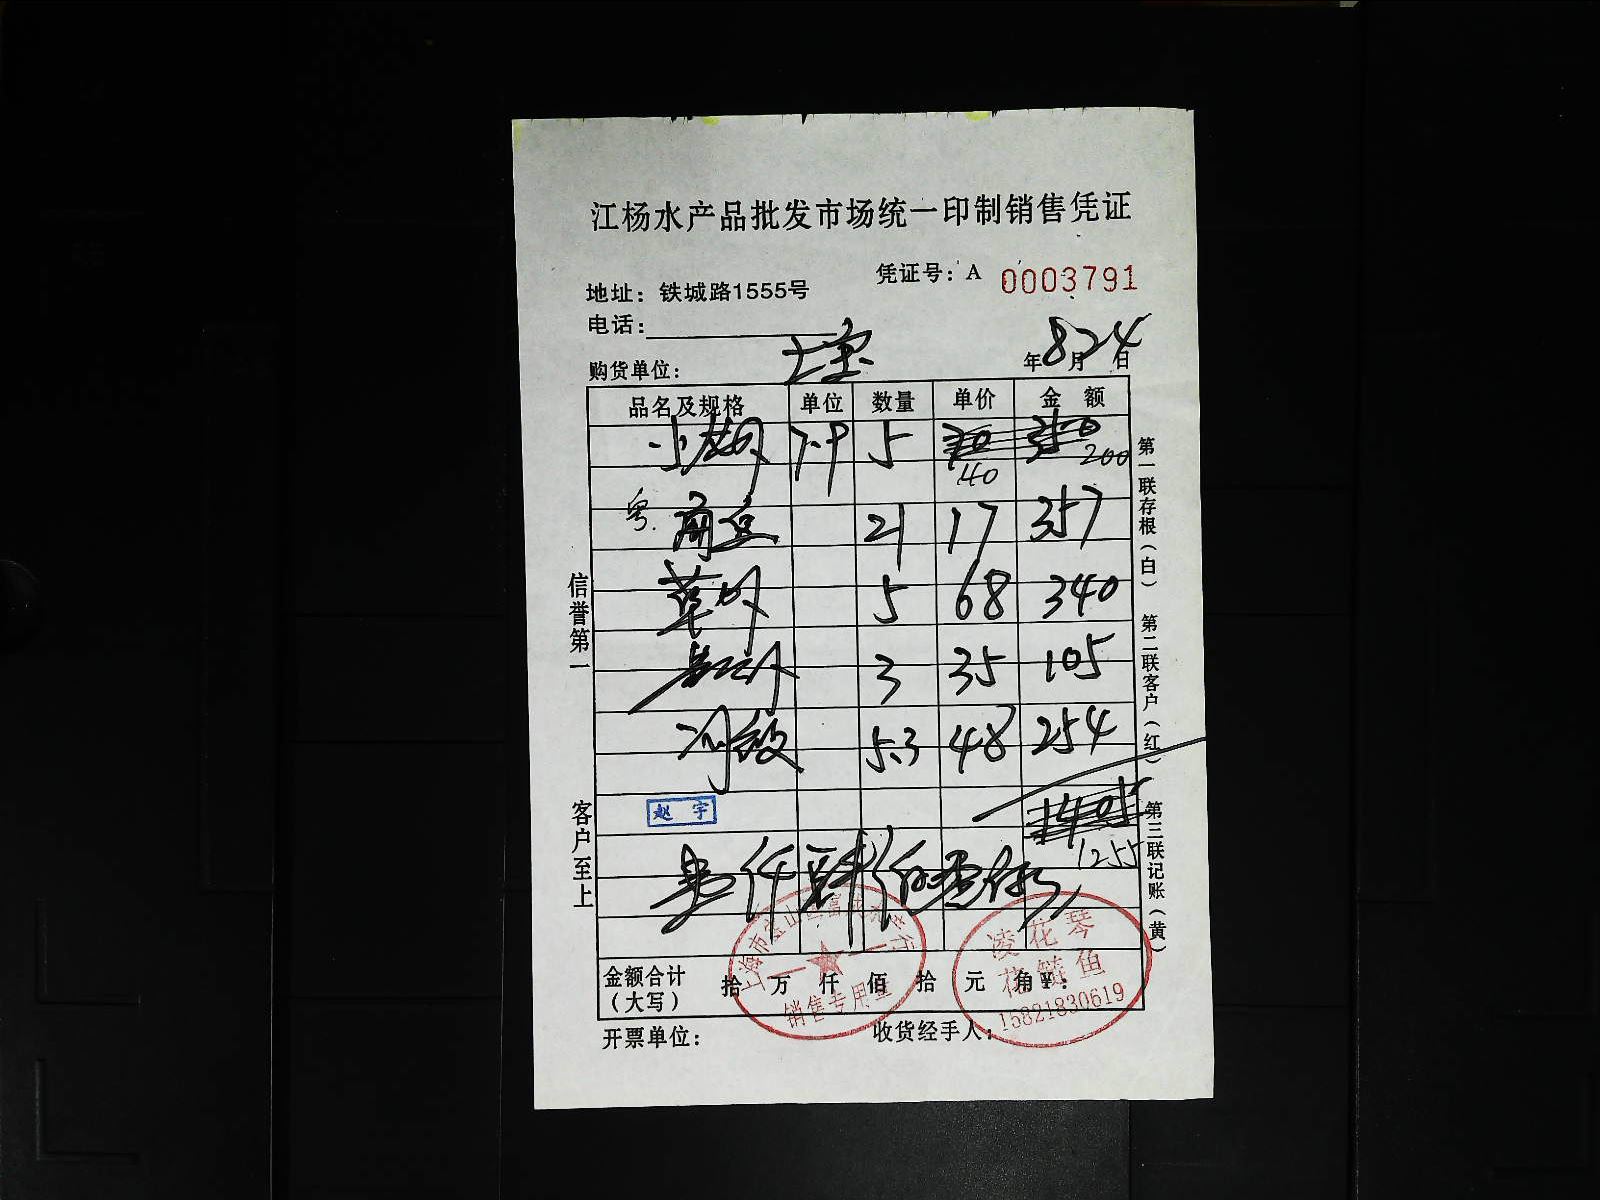 江杨水产品批发市场统一印制销售凭证
凭证号：A 0003791
地址：铁城路1555号
电话：
购货单位： 年8月24日
品名及规格 单位 数量 单价 金额
小 7-9 5 70 350
40 200
粤 21 17 357
草 5 68 340
3 35 105
5.3 48 254
赵宇
1405
1255
仟肆佰
金额合计（大写） 拾 万 仟 佰 拾 元 角 ¥：
开票单位： 收货经手人：
信誉第一
客户至上
第一联存根（白） 第二联客户（红） 第三联记账（黄）
上海市宝山区
销售专用章
凌花琴
花鲢鱼
15821830619